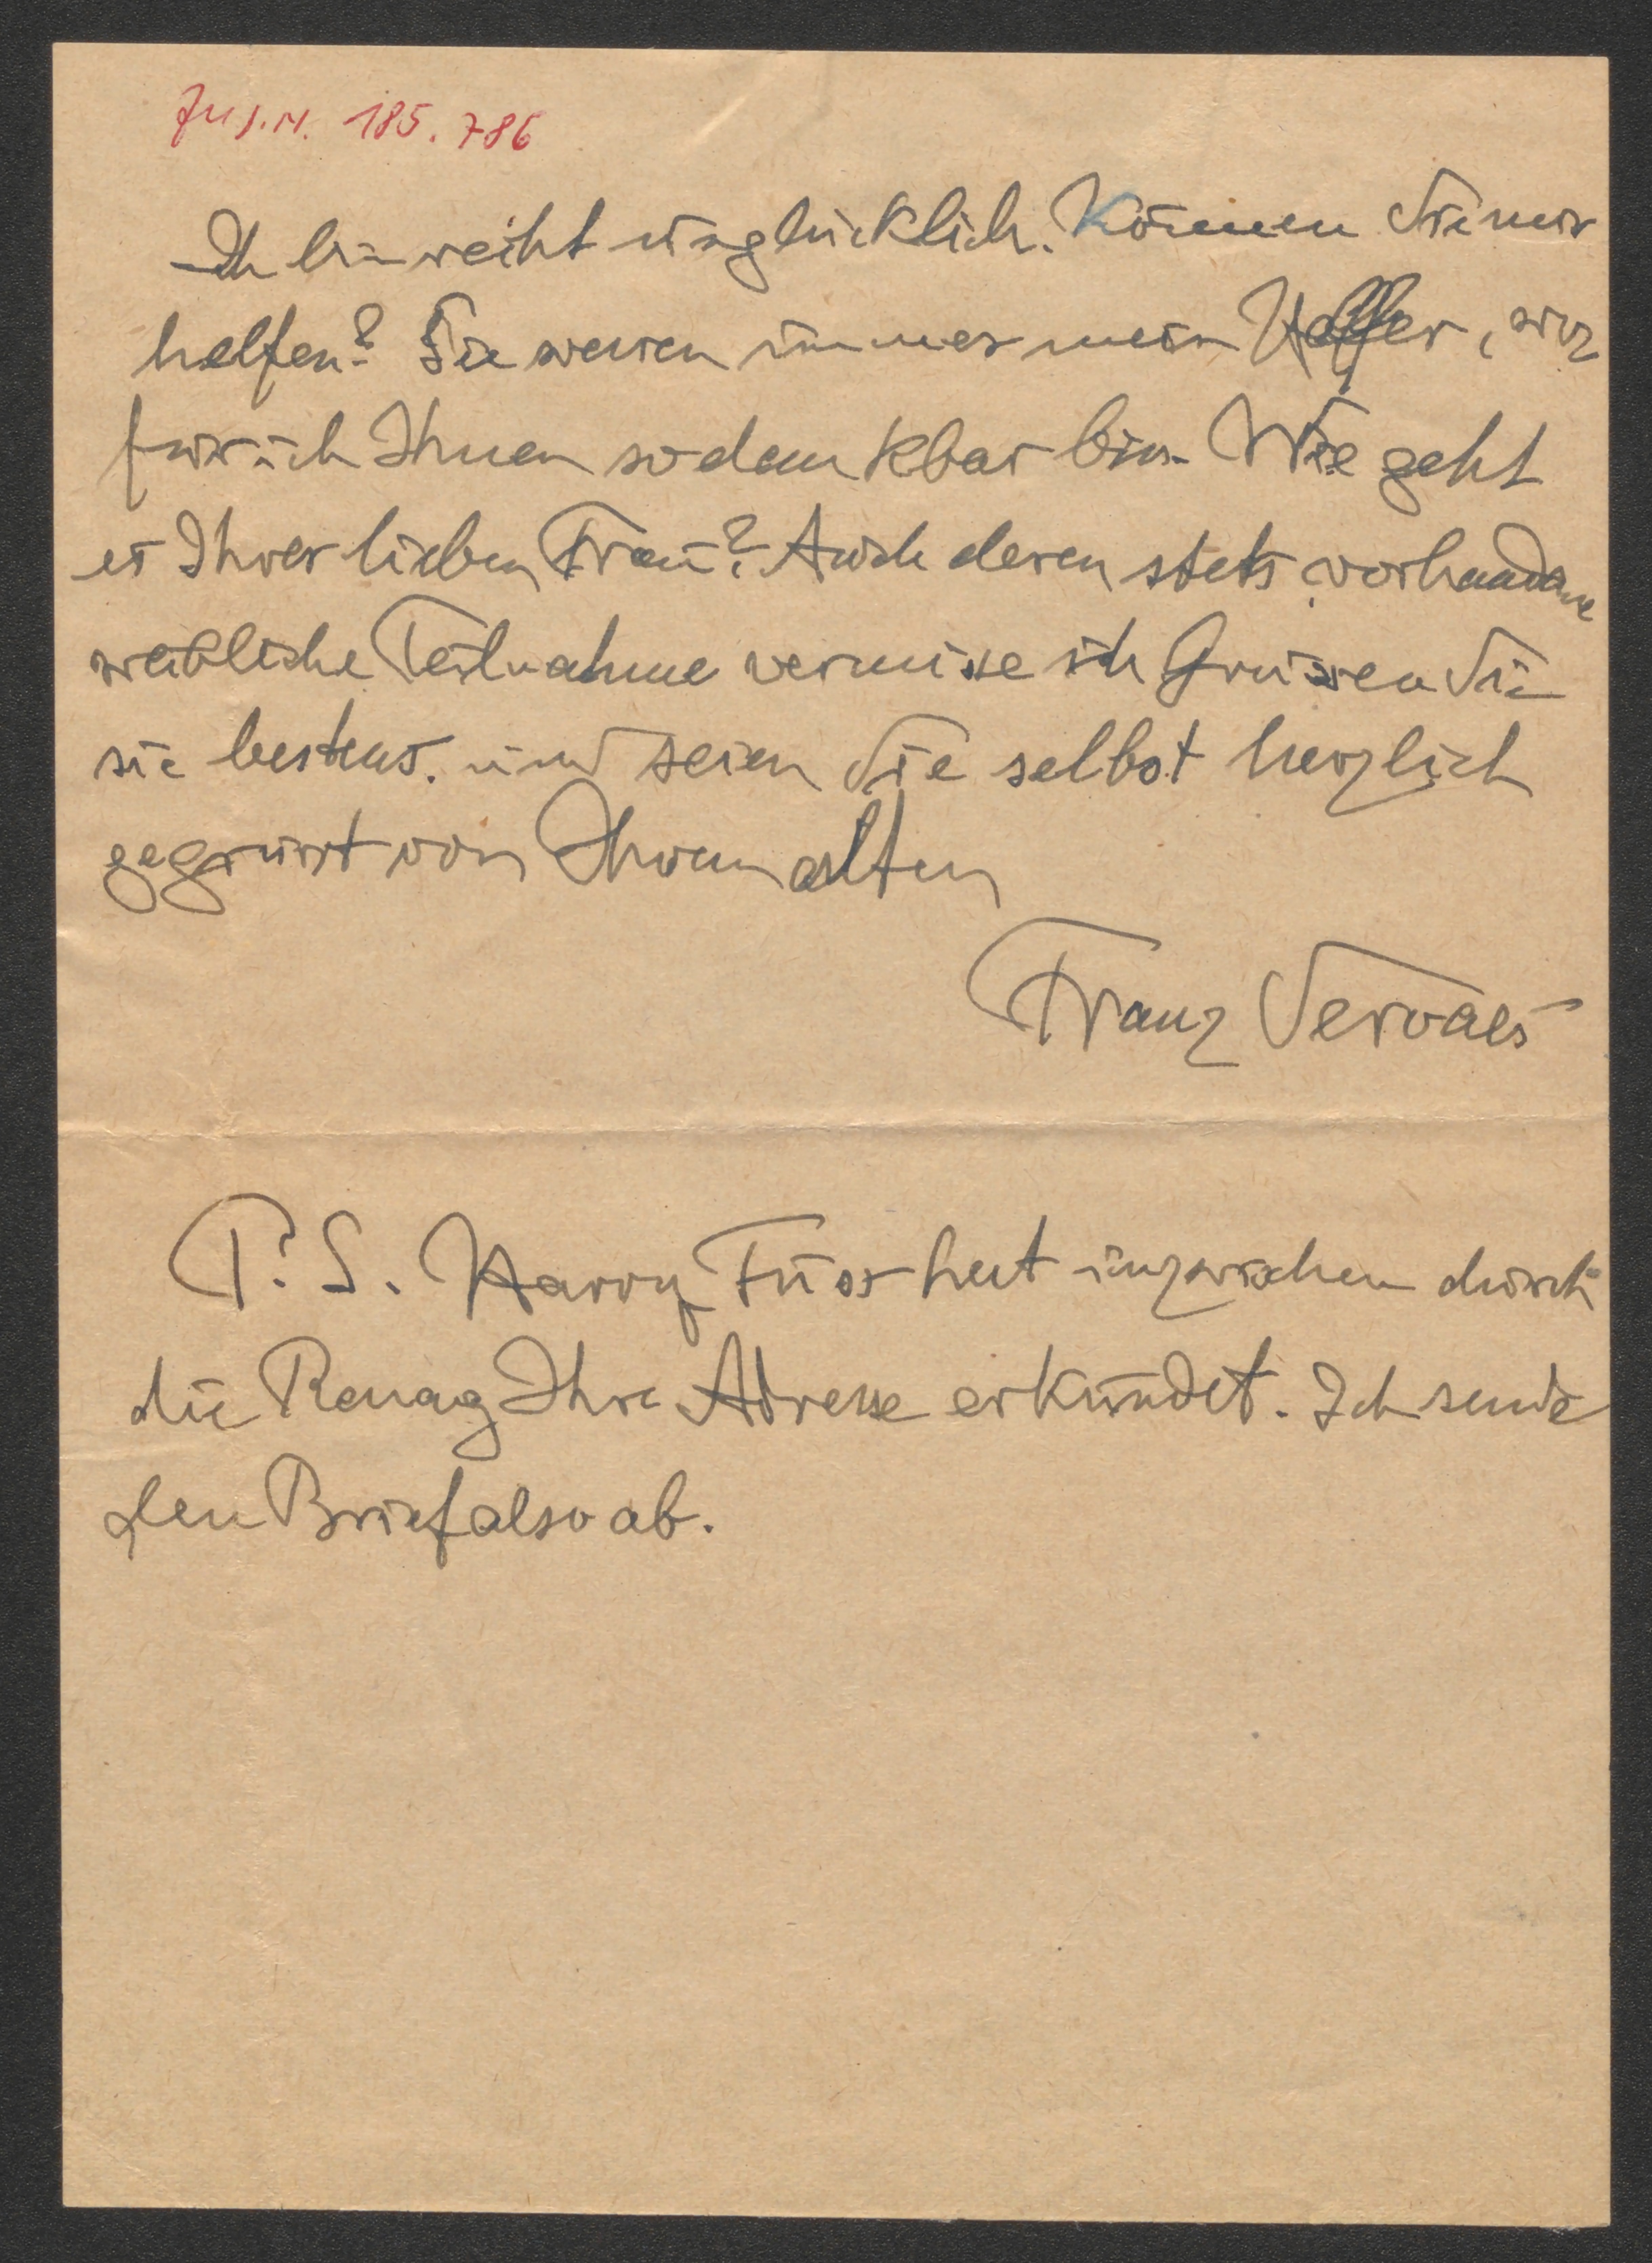 J.N. 185.786
Ich bin recht unglücklich. Können Sie mir
helfen? Sie waren immer mein Helfer, wo
für ich Ihnen so dankbar bin. Wie geht
es Ihrer lieben Frau? Auch deren stets vorhandene
weibliche Teilnahme vermisse ich Grüssen Sie
sie bestens. und seien Sie selbst herzlich
gegrüsst von Ihrem alten
Franz Servaes
P.S. Harry Fuss hat inzwischen durch
die Ravag Ihre Adresse erkundet. Ich sende
den Brief also ab.